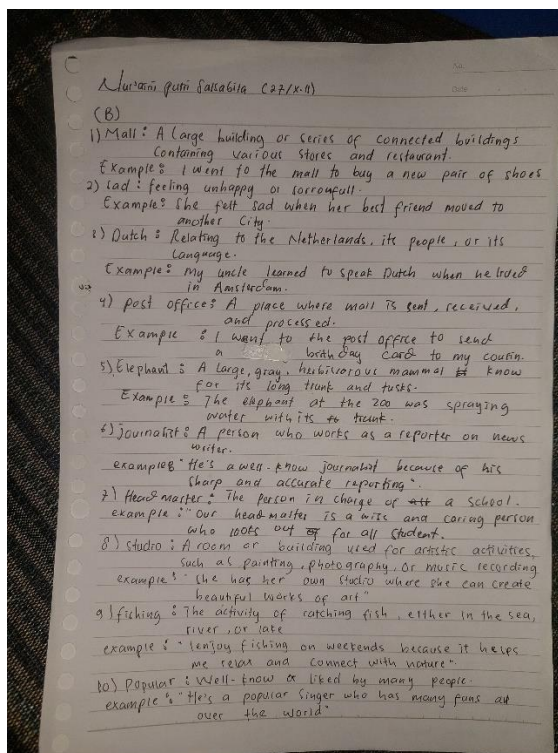 No.
Date
Nur'aini putri Salsabila (27/X-11)
(B)
1) Mall : A large building or series of connected buildings
Containing various stores and restaurant.
Example : I went to the mall to buy a new pair of shoes
2) Sad : feeling unhappy or sorrowfull.
Example : She felt sad when her best friend moved to
another City.
3) Dutch : Relating to the Netherlands, its people, or its
Language.
Example : My uncle learned to speak Dutch when he lived
in Amsterdam.
4) post office : A place where mail is sent, received,
and processed.
Example : I went to the post office to send
a birthday card to my cousin.
5) Elephant : A large, gray, herbivorous mammal know
for its long trunk and tusks.
Example : The elephant at the zoo was spraying
water with its trunk.
6) journalist : A person who works as a reporter or news
writer.
example : "He's a well-know journalist because of his
sharp and accurate reporting".
7) Head master : The person in charge of a school.
example : "Our head master is a wise and caring person
who looks out for all student.
8) studio : A room or building used for artistic activities,
such as painting, photography, or music recording
example : "she has her own studio where she can create
beautiful works of art"
9) fishing : The activity of catching fish, either in the sea,
river, or lake
example : "I enjoy fishing on weekends because it helps
me relax and connect with nature".
10) Popular : Well-know or liked by many people.
example : "He's a popular singer who has many fans all
over the world"